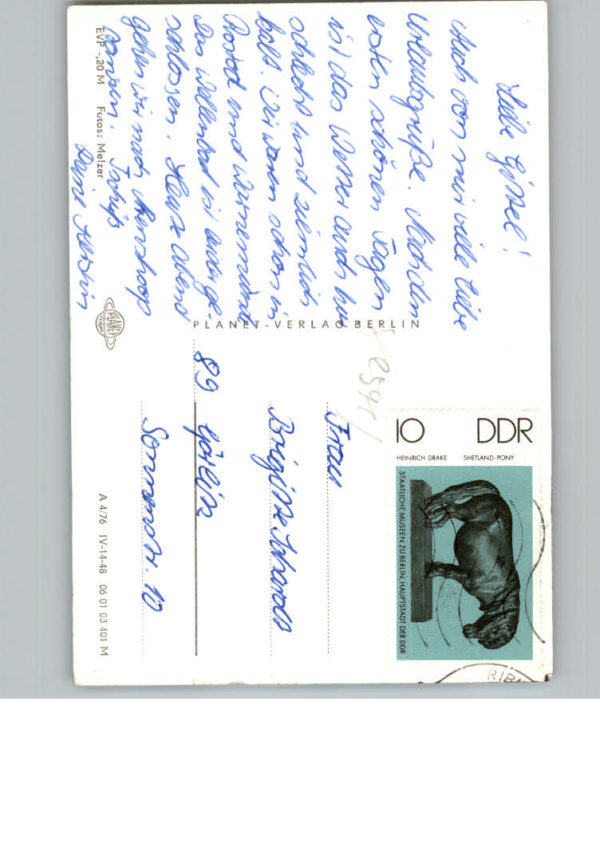 Liebe Gissel!
Auch von mir viele liebe
Urlaubsgrüße. Nach den
ersten schönen Tagen
ist das Wetter auch hier
schlecht und ziemlich
kalt. Wir waren schon in
Rostock und Warnemünde
Das Wellenbad ist auch ge
schlossen. Heute Abend
gehen wir nach Ahrenshoop
tanzen. Tschüß
Deine Kerstin
EVP -,20 M Fotos: Melzer
PLANET-VERLAG BERLIN
PLANET
Frau
Brigitte
89 Görlitz
Sonnenstr. 10
A 4/76 IV-14-48 06 01 03 401 M
10 DDR
HEINRICH DRAKE SHETLAND-PONY
STAATLICHE MUSEEN ZU BERLIN, HAUPTSTADT DER DDR
RIB